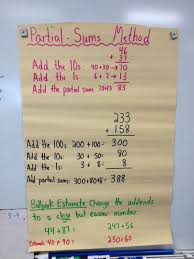 Partial-Sums Method
46
+
Add the 10s 40+30→70
Add the 1s 6+7→13
Add the partial sums: 70+13 83
233
+ 158
Add the 100s: 200+100= 300
Add the 10s: 30+50: 80
Add the 1s: 3+8= 8
Add partial sums: 300+80+8= 388
Ballpark Estimate: Change the addends
to a close but easier number
44+87: 241+56
Estimate: 40+90= 250+60
3-4